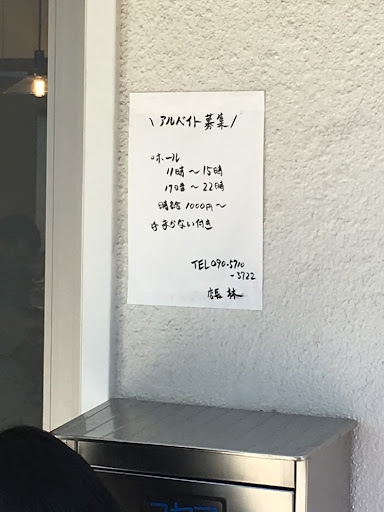 \ アルバイト募集 /
○ホール
11時〜15時
17時〜22時
時給 1000円〜
☆まかない付き
TEL 090-5710
-5722
店長 林